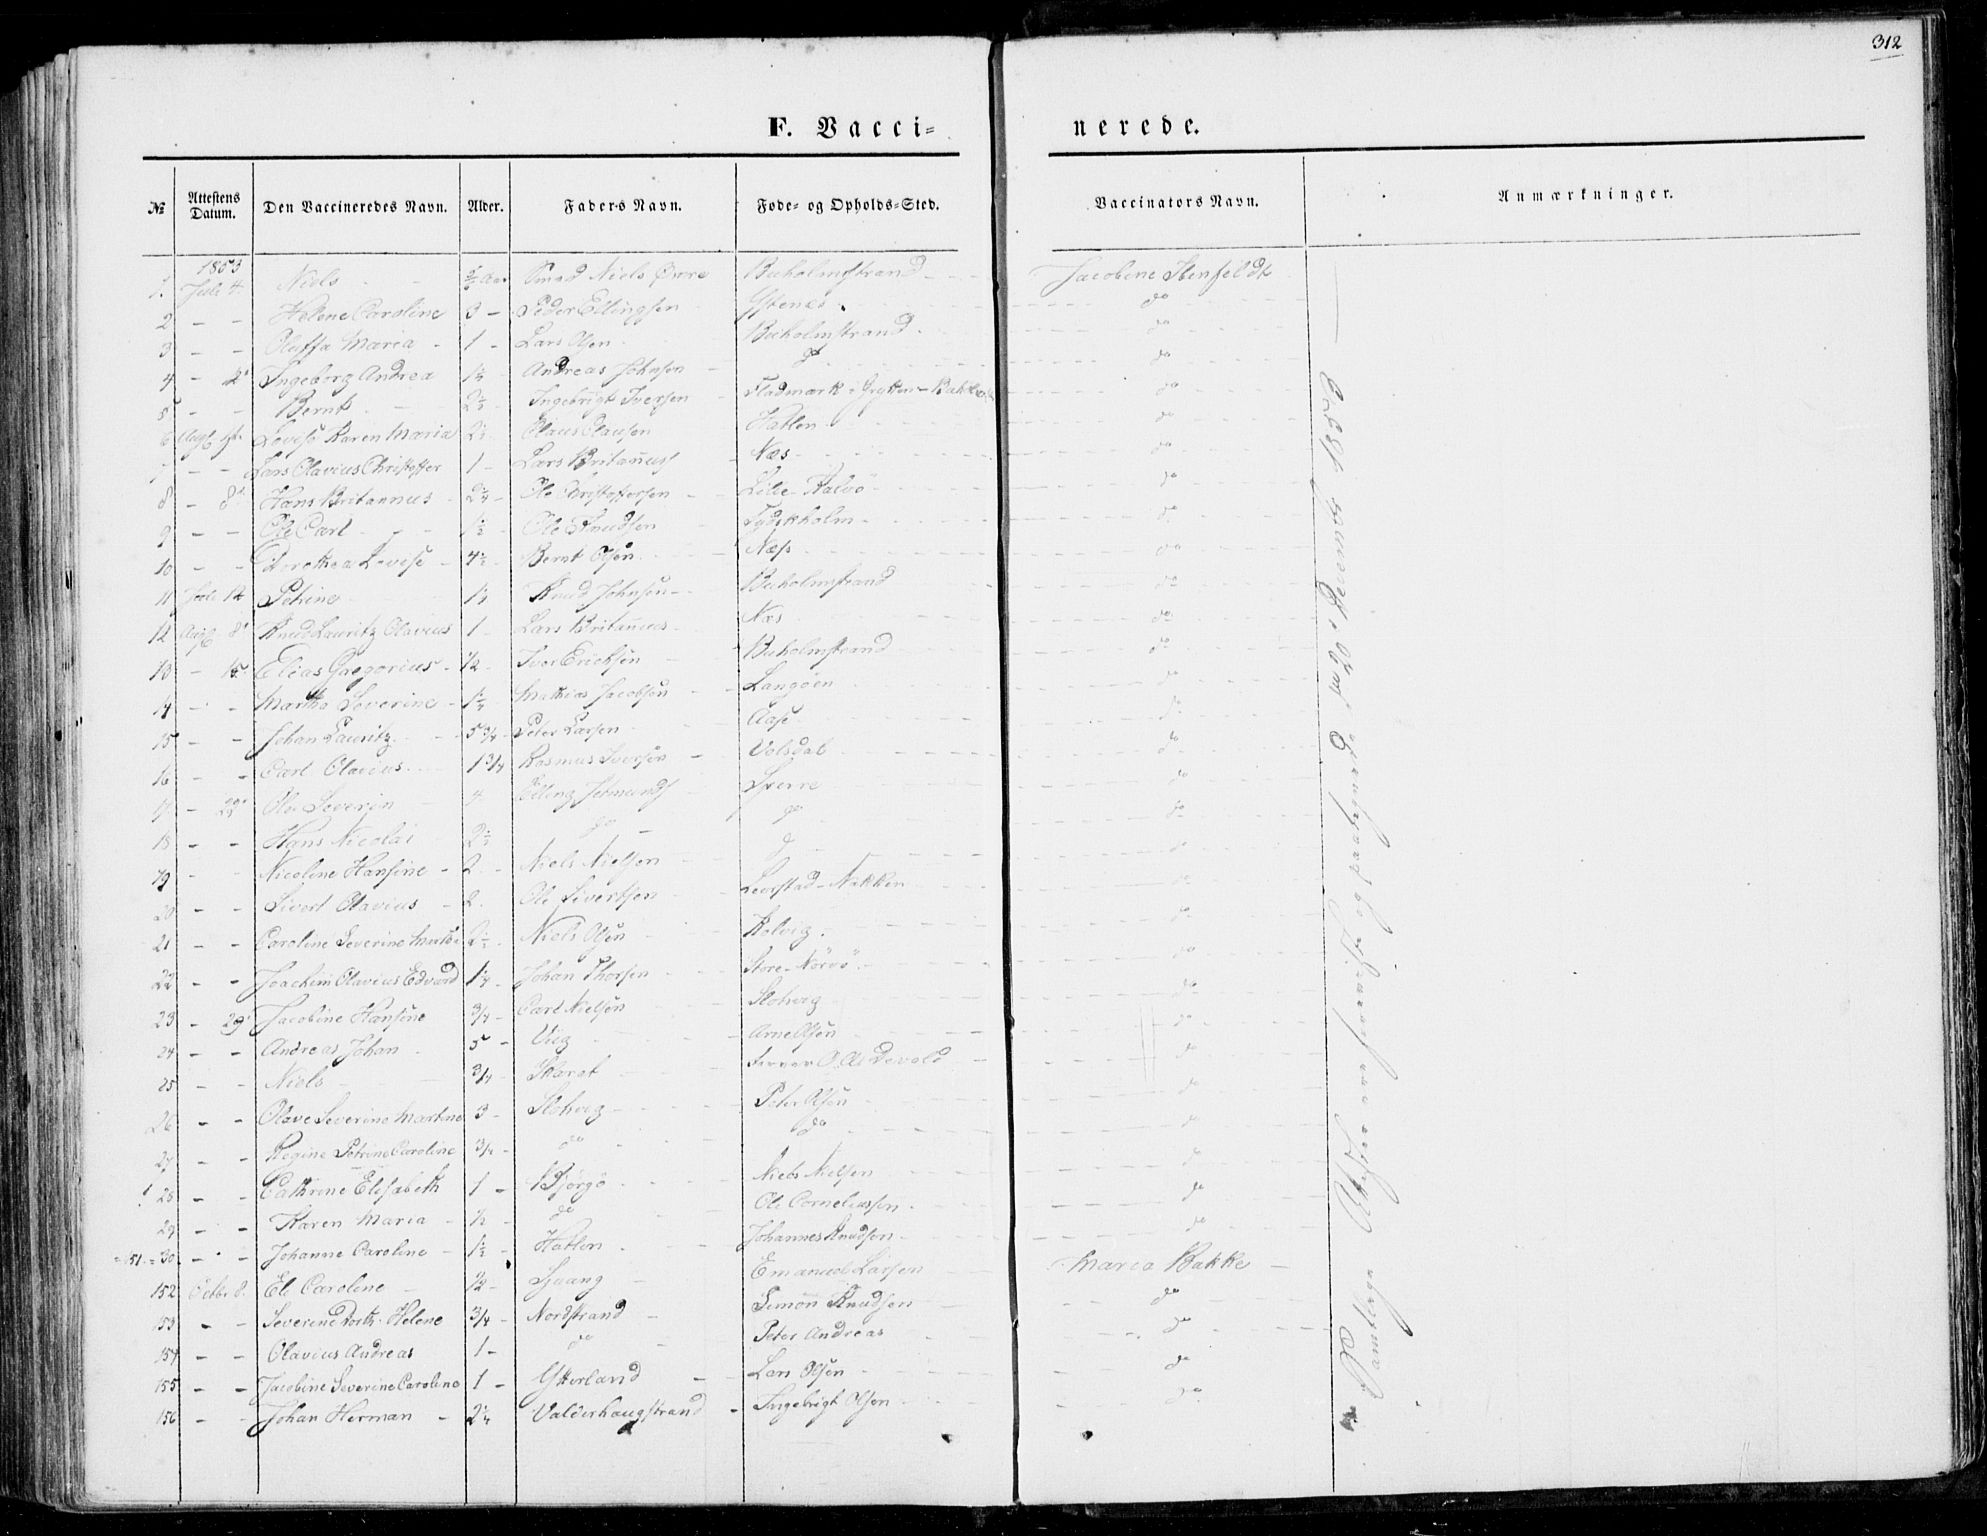 312
F. Vacci= nerede.
№ Attestens Datum. Den Vaccineredes Navn. Alder. Faders Navn. Føde- og Opholds-Sted. Vaccinators Navn. Anmærkninger.
1853
1. Juli 4. Niels Smed Niels Buholmstrand Jacobine
2 - - Helene Caroline 3 - Peder Ellingsen do
3 - - Oluffa Maria - 1 - Lars Olsen Buholmstrand do
4 - Ingeborg Andrea 1¼ Andreas Johnsen do do
5 - - Bernt Ingebrigt Iversen Fladmark - Grytten - do
6 Lovise Karen Maria Claus Clausen Hatlen do
7 - - Lars Olavius Christoffer 1 - Lars Britanus Næs do
8 - 8d Hans Britannus 2¼ - Ole Christoffersen Lille Kalvö do
9 - - Ole Carl 1½ Ole Knudsen Tydskholm do
10 - - Dorothea Lovise - 4½ - Bernt Olsen Næss do
11 Juli 12 Petrine 1¼ Knud Johnsen Buholmstrand do
12 8d Knud Lauritz Olavius 1 - Lars Britanus Næs do
13 - 15 Elias Gregorius - ½ - Iver Erichsen Buholmstrand do
14 - - Martha Severine - Mathias Jacobsen Langöen do
15 - - Johan Lauritz 5¾ - Peter Larsen Aase do
16 - - Carl Olavius 1¾ Rasmus Iversen Volsdal do
17 - 22d Ole Severin 4 Elling Sperre do
18 - - Hans Nicolai do do do
19 - - Nicoline Hansine - 2 - Niels Nielsen do do
20 - - Sivert Olavius - 2 Ole Sivertsen Leerstad-Nakken do
21 - - Caroline Severine Niels Olsen Kolvig do
22 - - Joachim Olavius Edvard 1¼ - Johan Thorsen Store-Nörvö do
23 - 29d Jacobine Hansine ¾ - Carl Nielsen Slotvig do
24 - - Andreas Johan 5 - Viig Arne Olsen do
25 - - Niels ¾ - Skaret O. A. Devold do
26 - - Olave Severine Martine 3 - Slotvig Peter Olsen do
27 - - Regine Petrine Caroline ¾ - do do do
28 - - Cathrine Elisabeth 1 - Niels Nielsen do
29 - - Karen Maria ½ - do Ole Corneliussen do
=151.=30 - - Johanne Caroline 1½ - Hatlen Johannes Knudsen do
152 Octbr 8. Eli Caroline Emanuel Larsen Maria Bakke
153 - - Severine Dorth. Helene ¾ - Nordstrand Simon Knudsen do
154 - - Olavius Andreas 1 - do Peter Andreas do
155 - - Jacobine Severine Caroline 1 - Ytterland Lars Olsen do
156 - - Johan Herman - 2¼ Valderhaugstrand Ingebrigt Olsen do
Samtlige Attester ere foreviste og paategnede 20d 1853